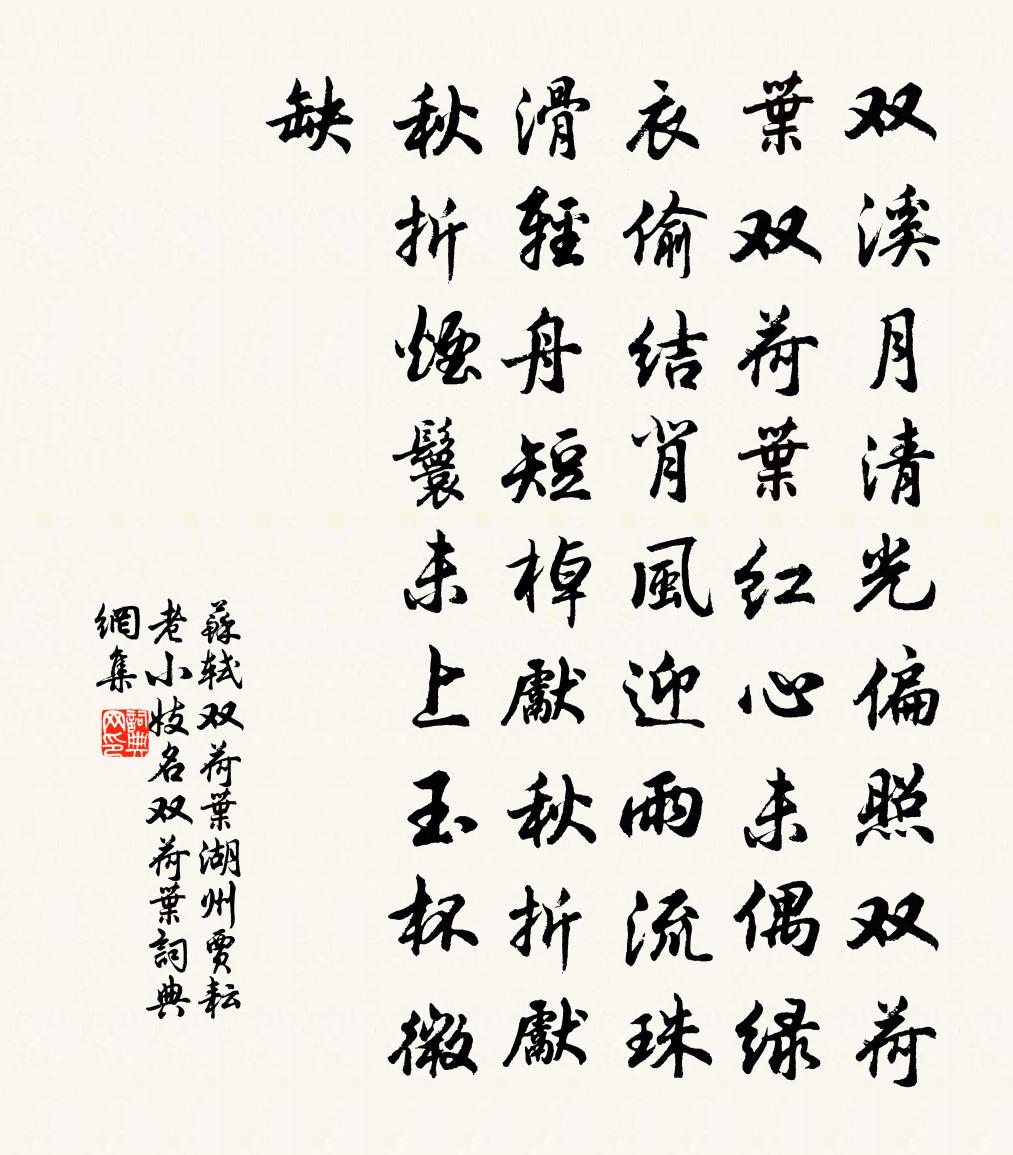 双溪月清光偏照双荷
葉双荷葉红心未偶绿
衣偷结背風迎雨流珠
滑輕舟短棹獻秋折獻
秋折煙鬟未上玉杯微
缺
蘇轼双荷葉湖州賈耘
老小妓名双荷葉詞典
網集
詞典网印